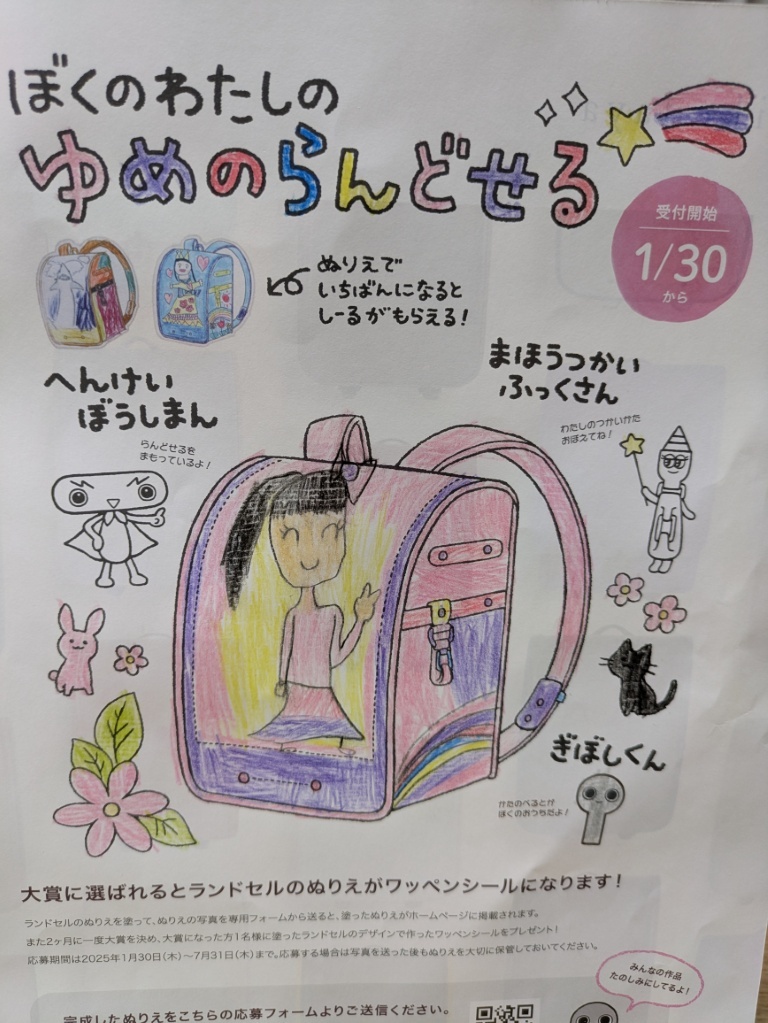 ぼくのわたしの
ゆめのらんどせる
受付開始
1/30
から
ぬりえで
いちばんになると
しーるがもらえる!
へんけい
ぼうしまん
らんどせるを
まもっているよ!
まほうつかい
ふっくさん
わたしのつかいかた
おぼえてね!
ぎぼしくん
かたのべるとが
ぼくのおうちだよ!
大賞に選ばれるとランドセルのぬりえがワッペンシールになります!
ランドセルのぬりえを塗って、ぬりえの写真を専用フォームから送ると、塗ったぬりえがホームページに掲載されます。
また2ヶ月に一度大賞を決め、大賞になった方1名様に塗ったランドセルのデザインで作ったワッペンシールをプレゼント!
応募期間は2025年1月30日(木)〜7月31日(木)まで。応募する場合は写真を送った後もぬりえを大切に保管しておいてください。
みんなの作品
たのしみにしてるよ!
完成したぬりえをこちらの応募フォームよりご送信ください。